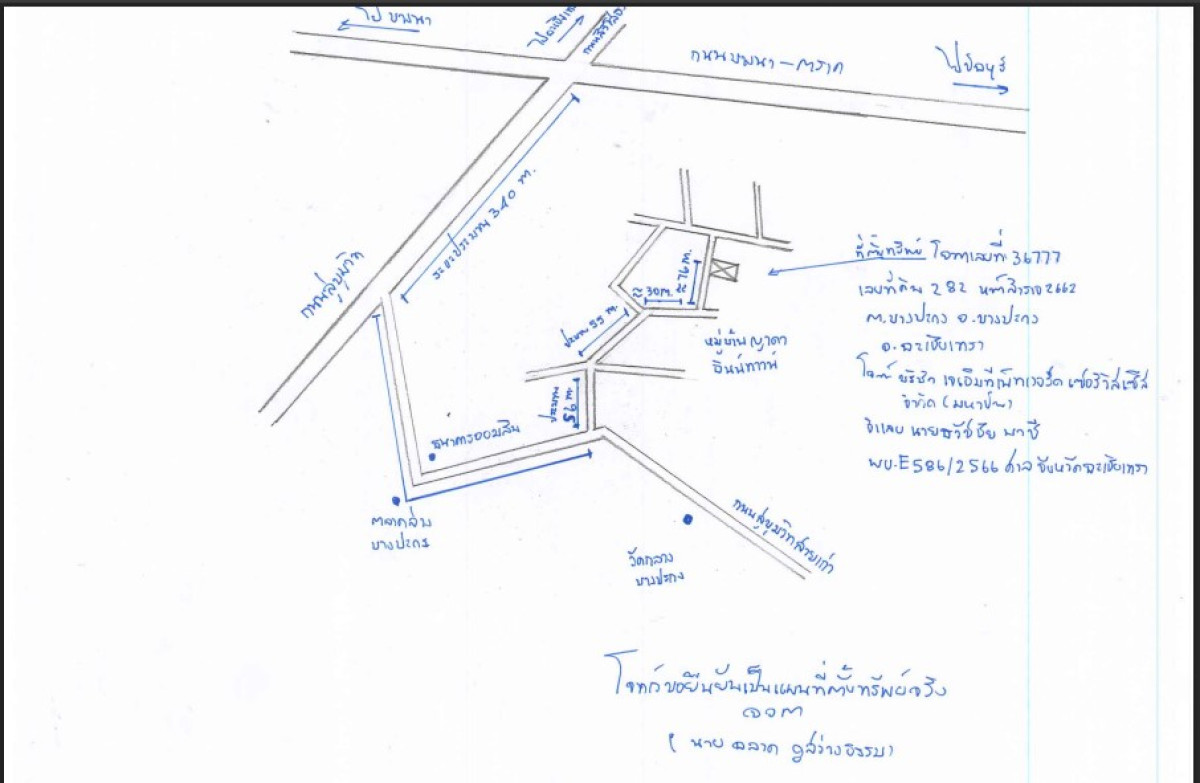 ไป บางนา
ไปฉะเชิงเทรา
ถนนสิริโสธร
ถนนบางนา - ตราด
ไปชลบุรี
ระยะประมาณ 340 ม.
ถนนสุขุมวิท
ที่ตั้งทรัพย์ โฉนดเลขที่ 36777
เลขที่ดิน 282 หน้าสำรวจ 2662
ต.บางปะกง อ.บางปะกง
จ.ฉะเชิงเทรา
โจทก์ บริษัท เจเอ็มที เน็ทเวอร์ค เซอร์วิสเซ็ส
จำกัด (มหาชน)
จำเลย นายธวัชชัย
ผบ.E586/2566 ศาลจังหวัดฉะเชิงเทรา
≈ 76 ม.
≈ 30 ม.
ประมาณ 55 ม.
หมู่บ้าน ญาดา
ประมาณ
56 ม.
ธนาคารออมสิน
ตลาดสด
บางปะกง
ถนนสุขุมวิทสายเก่า
วัดกลาง
บางปะกง
โจทก์ขอยืนยันเป็นแผนที่ตั้งทรัพย์จริง
ฉลาด
( นาย ฉลาด